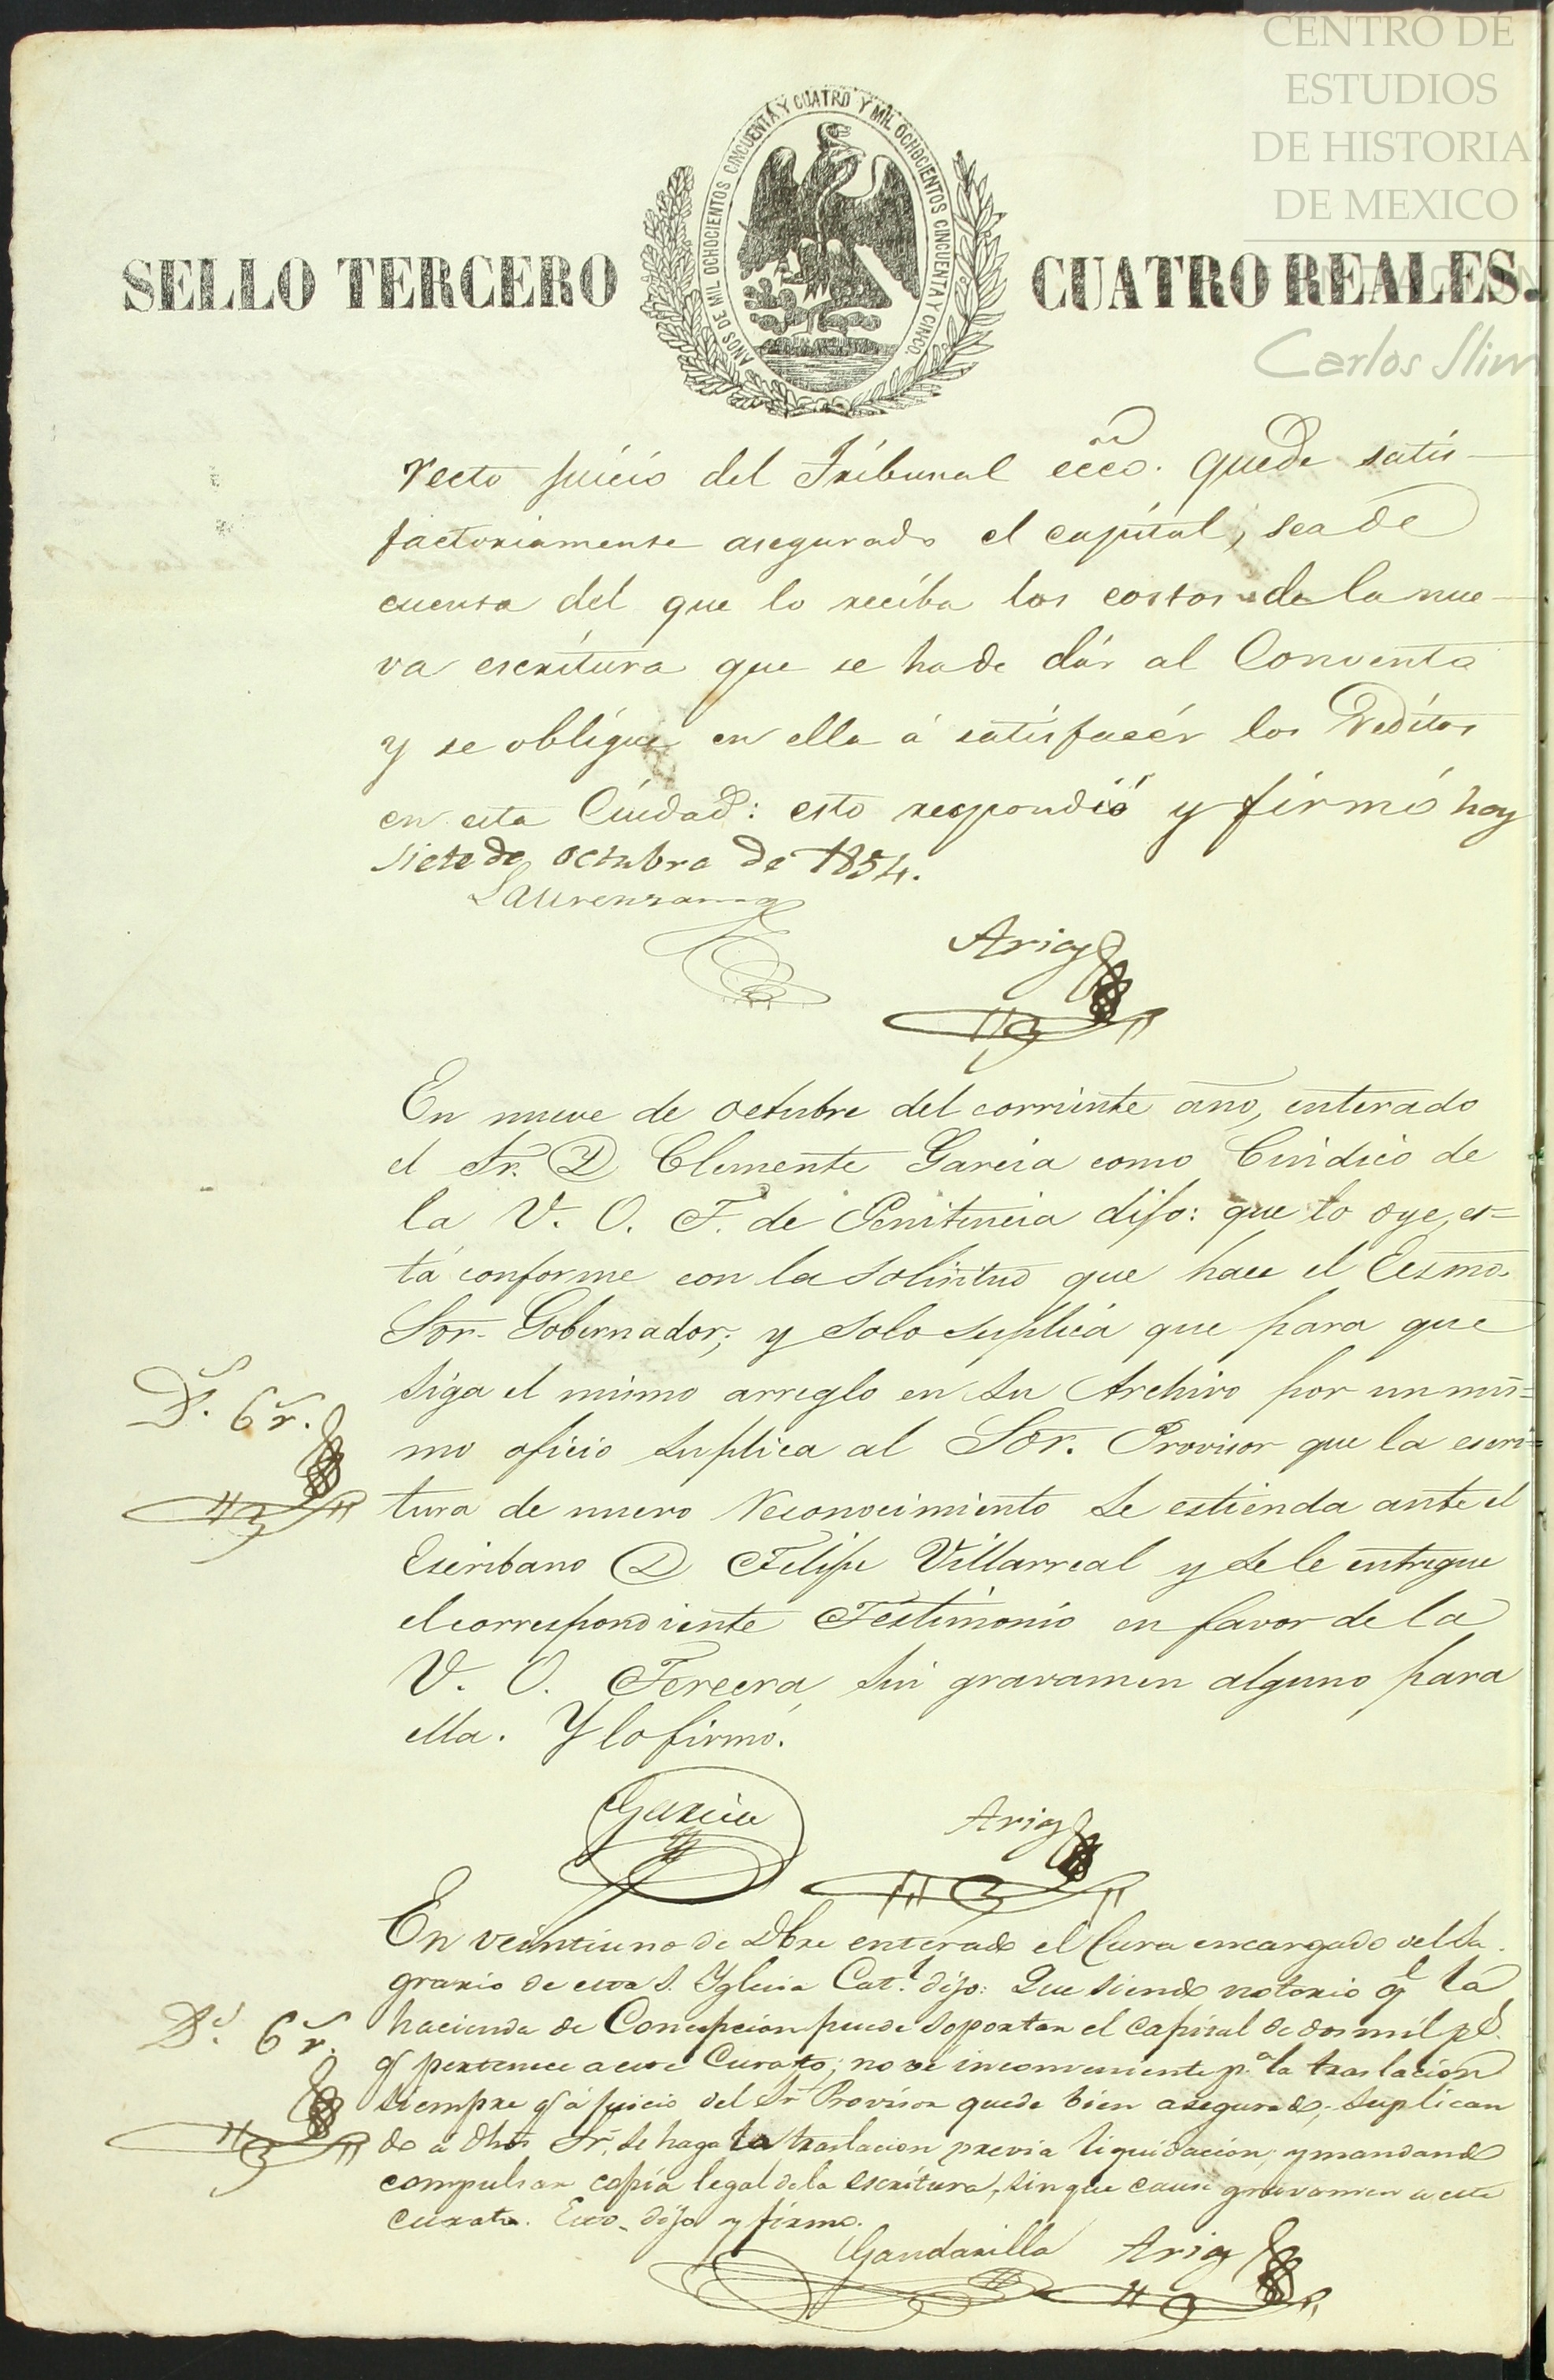 CENTRO DE
ESTUDIOS
DE HISTORIA
DE MEXICO
Carlos Slim
AÑOS DE MIL OCHOCIENTOS CINCUENTA Y CUATRO Y MIL OCHOCIENTOS CINCUENTA Y CINCO.
SELLO TERCERO CUATRO REALES.
recto juicio del Tribunal ecco. quede satis-
factoriamente asegurado el capital, sea de
cuenta del que lo reciba los costos de la nue-
va escritura que se ha de dár al Convento
y se obligue en ella á satisfacér los reditos
en esta Ciudad: esto respondió y firmó hoy
siete de octubre de 1854.
Arias
En nueve de octubre del corriente año, enterado
el Sr. D Clemente Garcia como Cindico de
la V. O. T. de Penitencia dijo: que lo oye, es=
tá conforme con la solicitud que hace el Ecsmo.
Sor. Gobernador; y solo suplica que para que
siga el mismo arreglo en su Archivo por un mis=
mo oficio suplica al Sor. Provisor que la escri=
tura de nuevo reconocimiento se estienda ante el
Escribano D Felipe Villarreal y se le entregue
el correspondiente Testimonio en favor de la
V. O. Tercera, sin gravamen alguno para
ella. Y lo firmó.
Ds. 6 r.
Garcia Arias
En veintiuno de Dbre enterado el Cura encargado del Sa-
grario de esta S. Yglesia Catl. dijo: Que siendo notorio q. la
hacienda de Concepcion puede soportar el capital de dos mil ps.
q. pertenece a este Curato; no ve inconveniente pa. la traslacion
siempre q. á juicio del Sr. Provisor quede bien asegurado; suplican
do á dho Sr. se haga la traslacion previa liquidacion, y mandando
compulsar copia legal de la escritura, sin que cause gravamen a este
curato. Esto dijo y firmó.
Ds. 6 r.
Gandarilla Arias